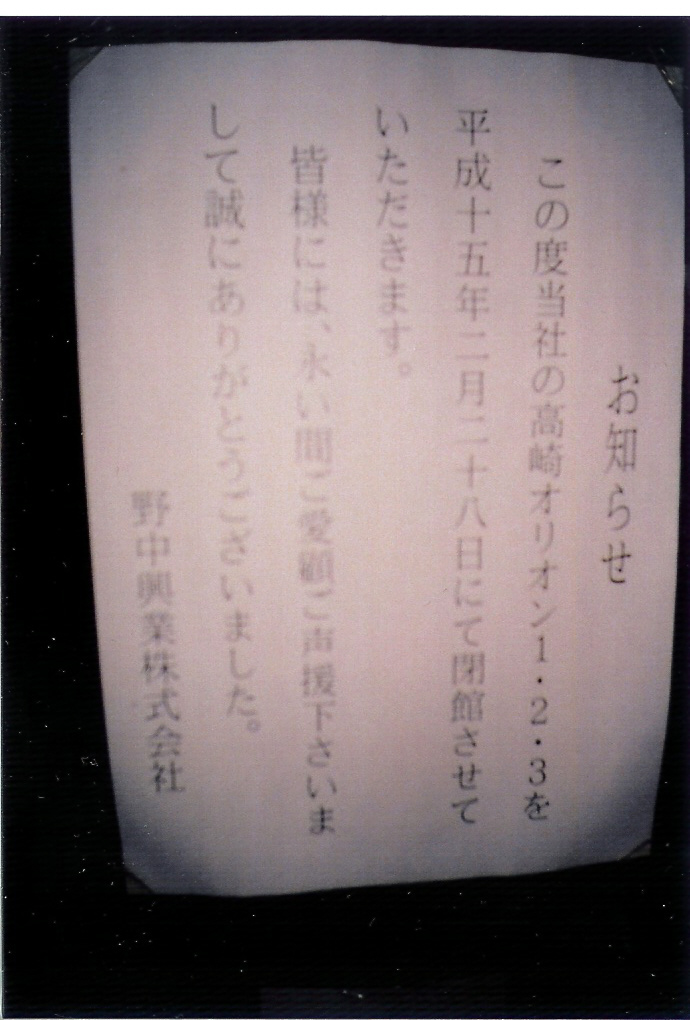 お知らせ
この度当社の高崎オリオン1・2・3を
平成十五年二月二十八日にて閉館させて
いただきます。
皆様には、永い間ご愛顧ご声援下さいま
して誠にありがとうございました。
野中興業株式会社